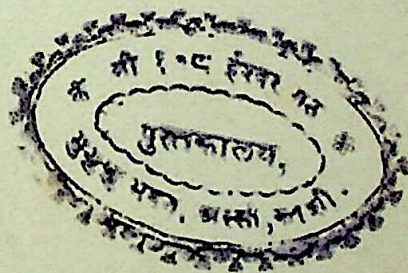 श्री १०८ ईश्वर
पुस्तकालय,
भवन, अस्सी, काशी.